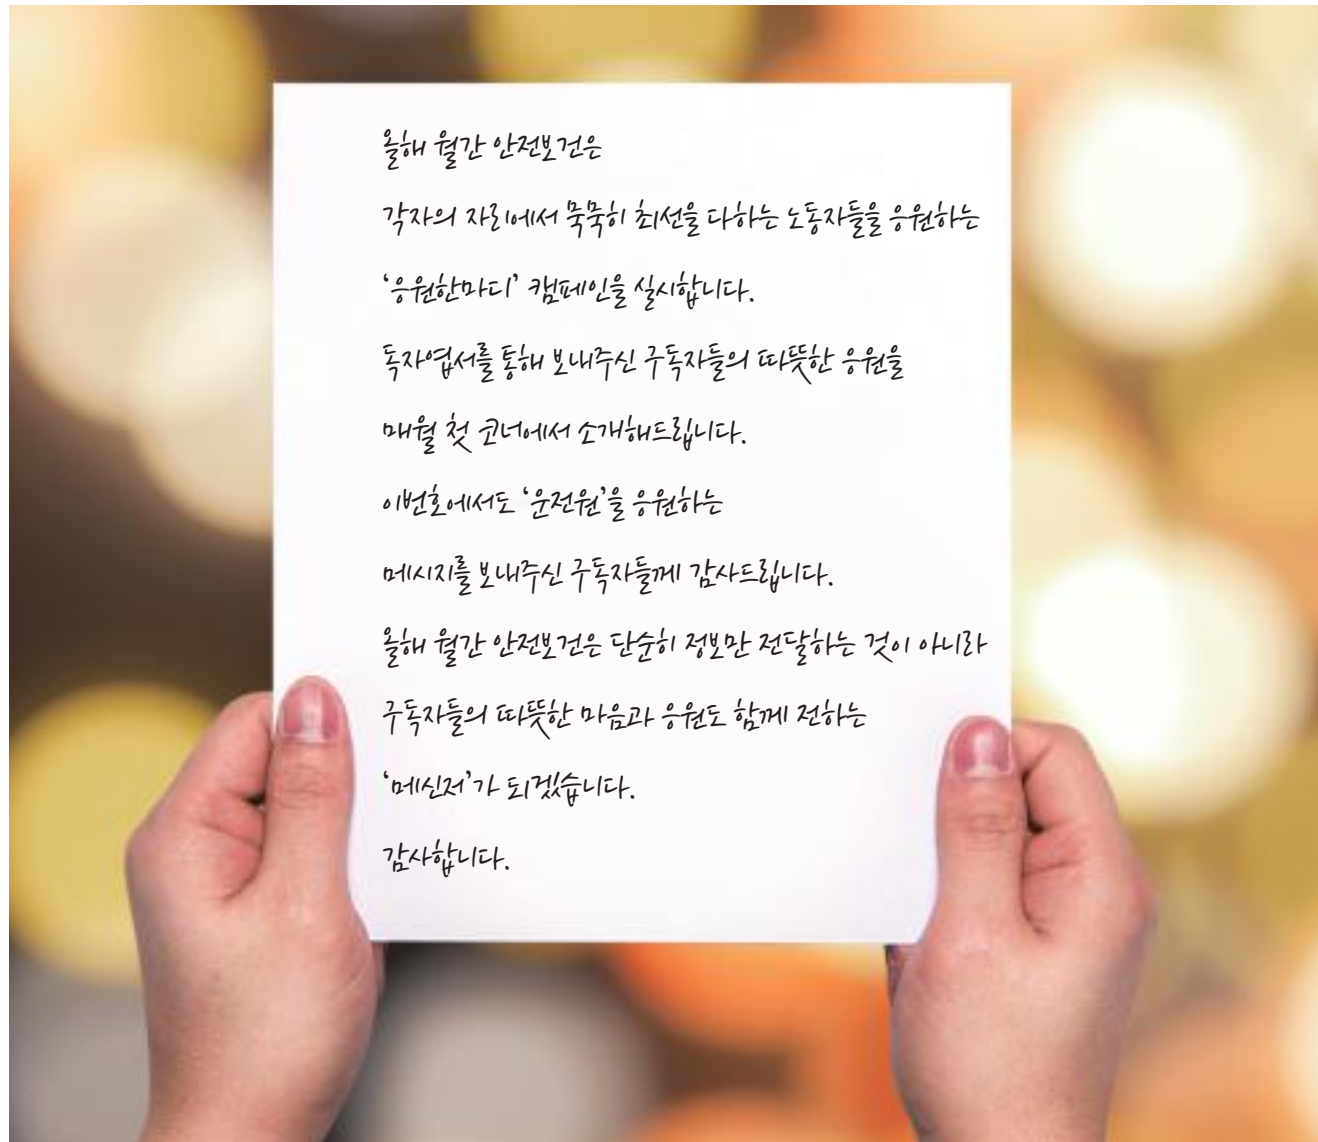 올해 월간 안전보건은
각자의 자리에서 묵묵히 최선을 다하는 노동자들을 응원하는
‘응원한마디’ 캠페인을 실시합니다.
독자엽서를 통해 보내주신 구독자들의 따뜻한 응원을
매월 첫 코너에서 소개해드립니다.
이번호에서도 ‘운전원’을 응원하는
메시지를 보내주신 구독자들께 감사드립니다.
올해 월간 안전보건은 단순히 정보만 전달하는 것이 아니라
구독자들의 따뜻한 마음과 응원도 함께 전하는
‘메신저’가 되겠습니다.
감사합니다.